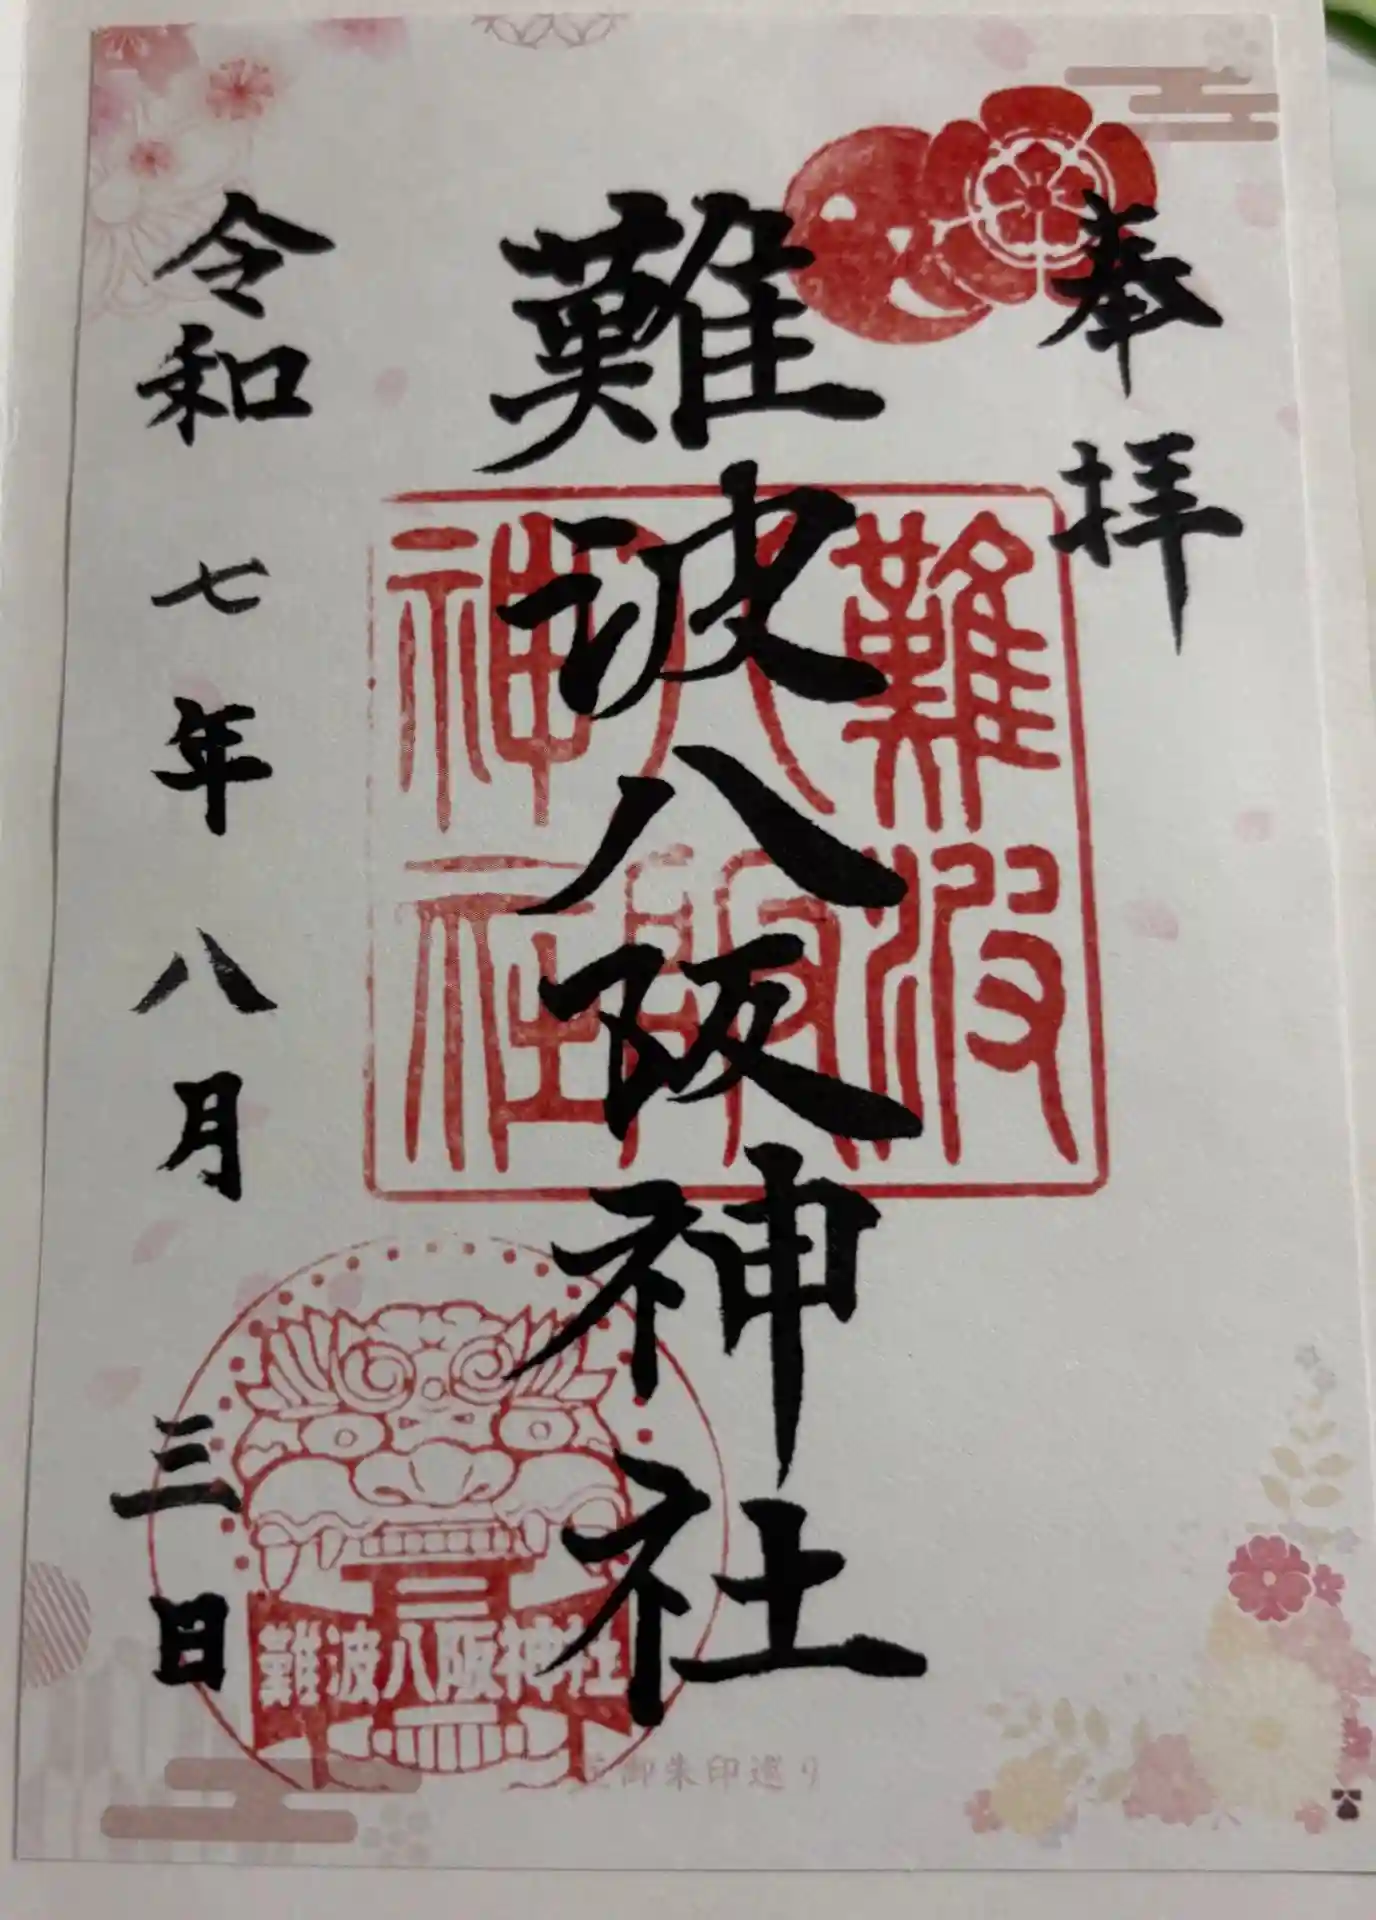 奉拝
難波八阪神社
難波
八阪
神社
令和七年八月三日
難波八阪神社
御朱印巡り